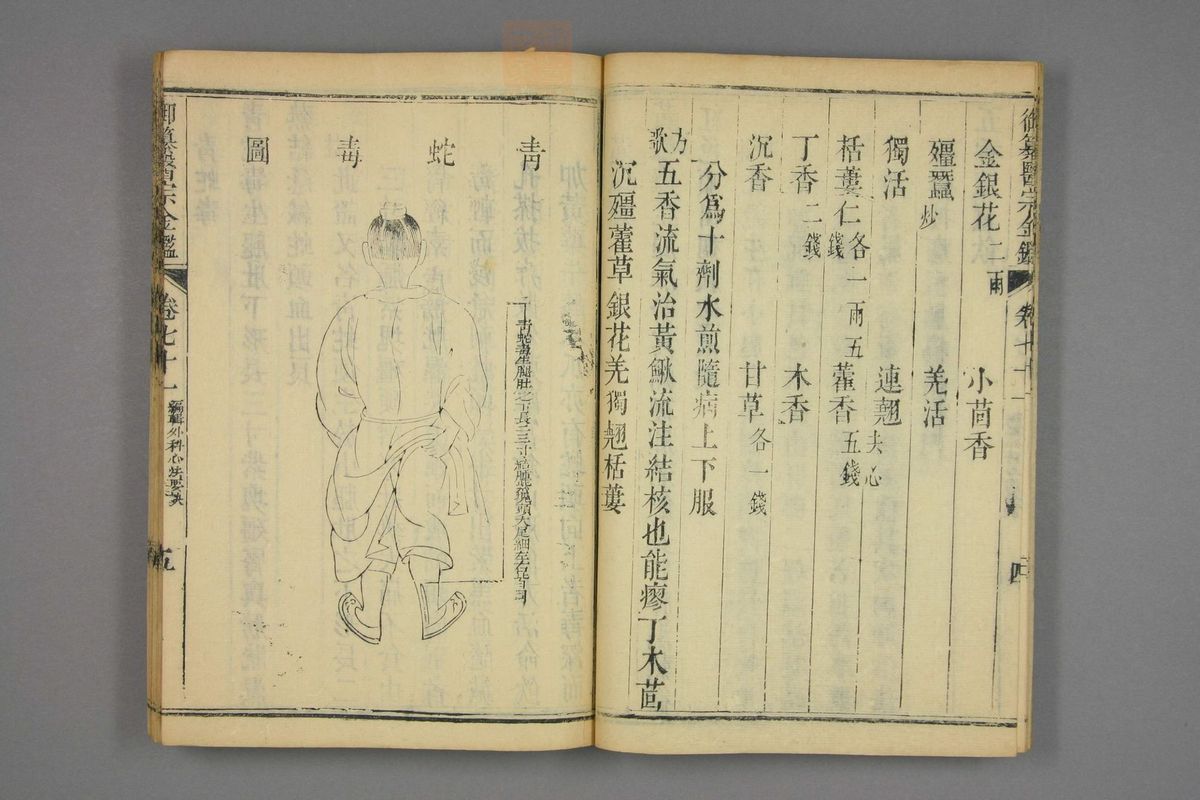 御纂醫宗金鑑 卷七十一 四
金銀花二兩 小茴香
殭蠶炒 羌活
獨活 連翹去心
栝蔞仁各一兩五錢 藿香五錢
丁香二錢 木香
沉香 甘草各一錢
分爲十劑水煎隨病上下服
方歌 五香流氣治黃鰍流注結核也能瘳丁木茴
沉殭藿草銀花羌獨翹栝蔞
青蛇毒圖
青蛇毒生腿肚之下長二三寸結腫紫塊頭大尾細左右皆同
御纂醫宗金鑑 卷七十一 編輯外科心法要訣